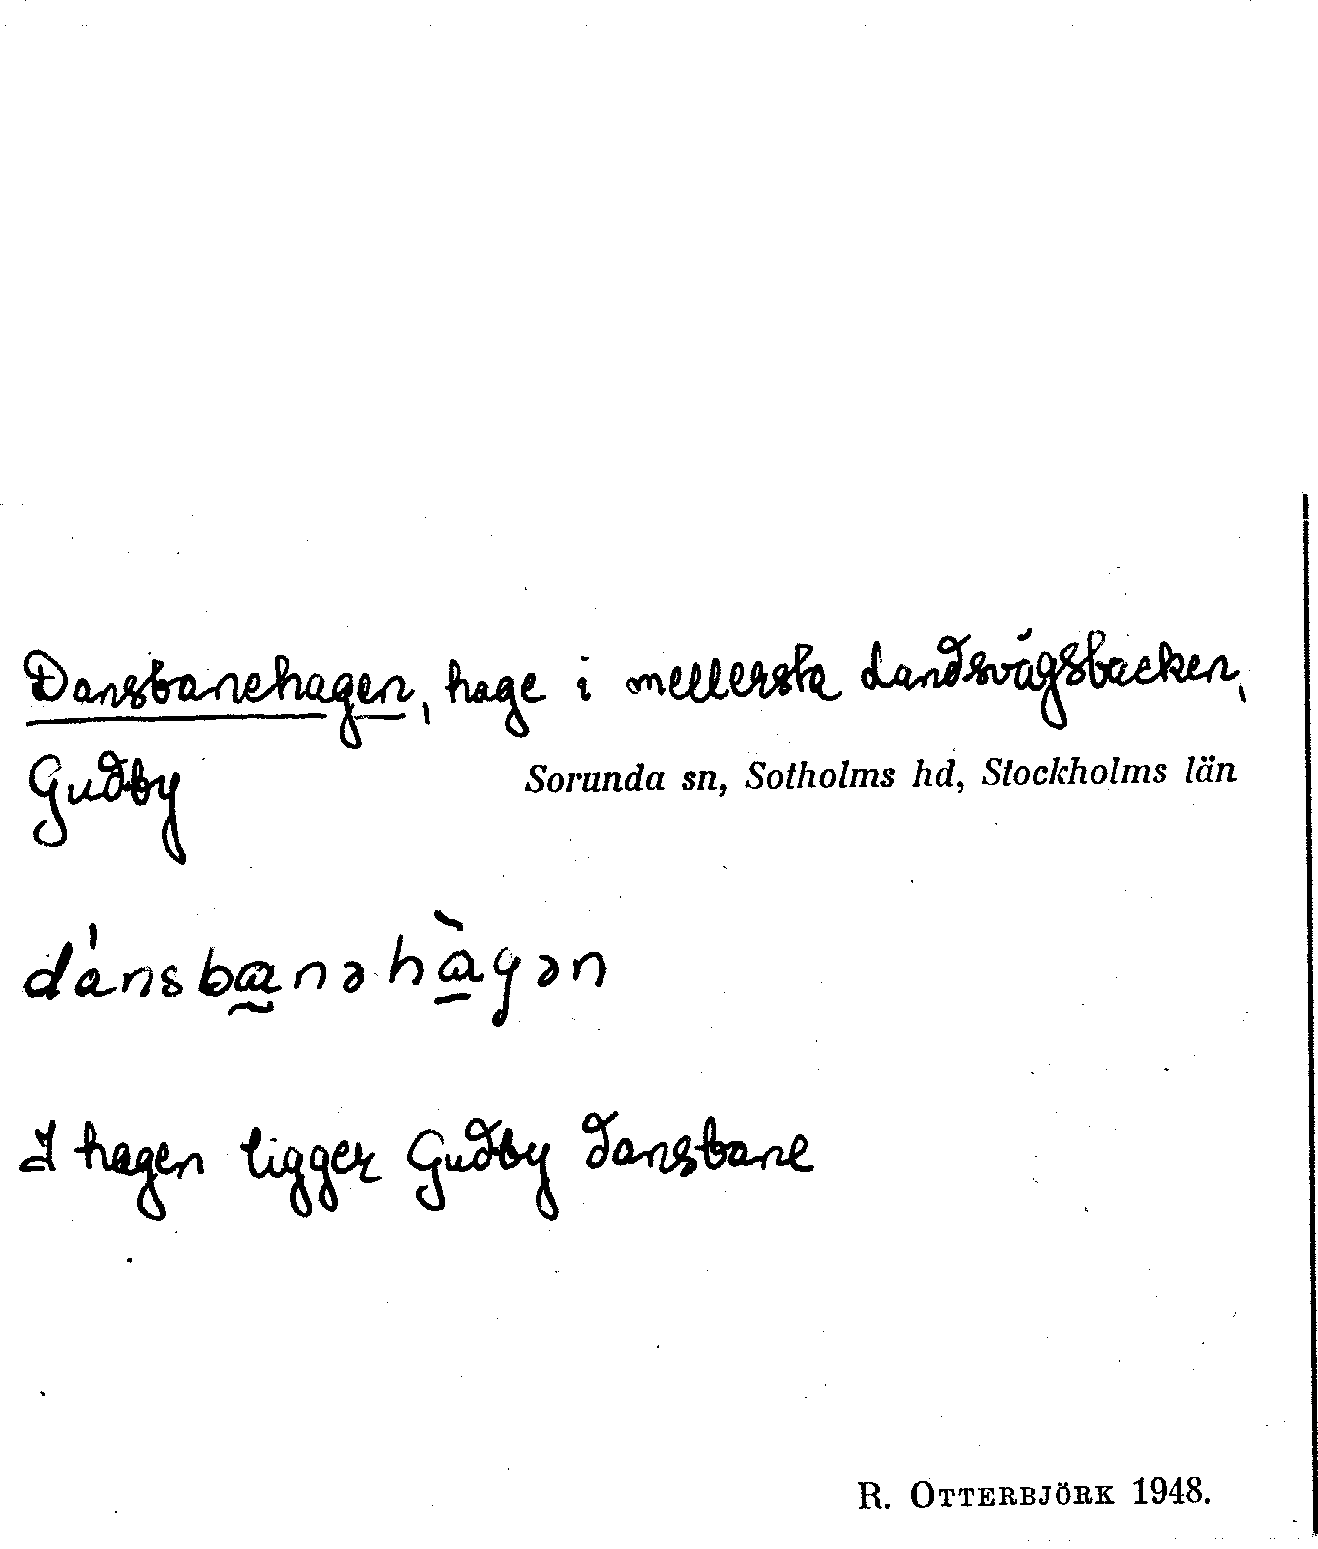 Dansbanehagen, hage i mellersta Landsvägsbacken,
Gudby
Sorunda sn, Sotholms hd, Stockholms län
dánsbɑ̰nəhɑ̠̀gən
I hagen ligger Gudby dansbane
R. OTTERBJÖRK 1948.